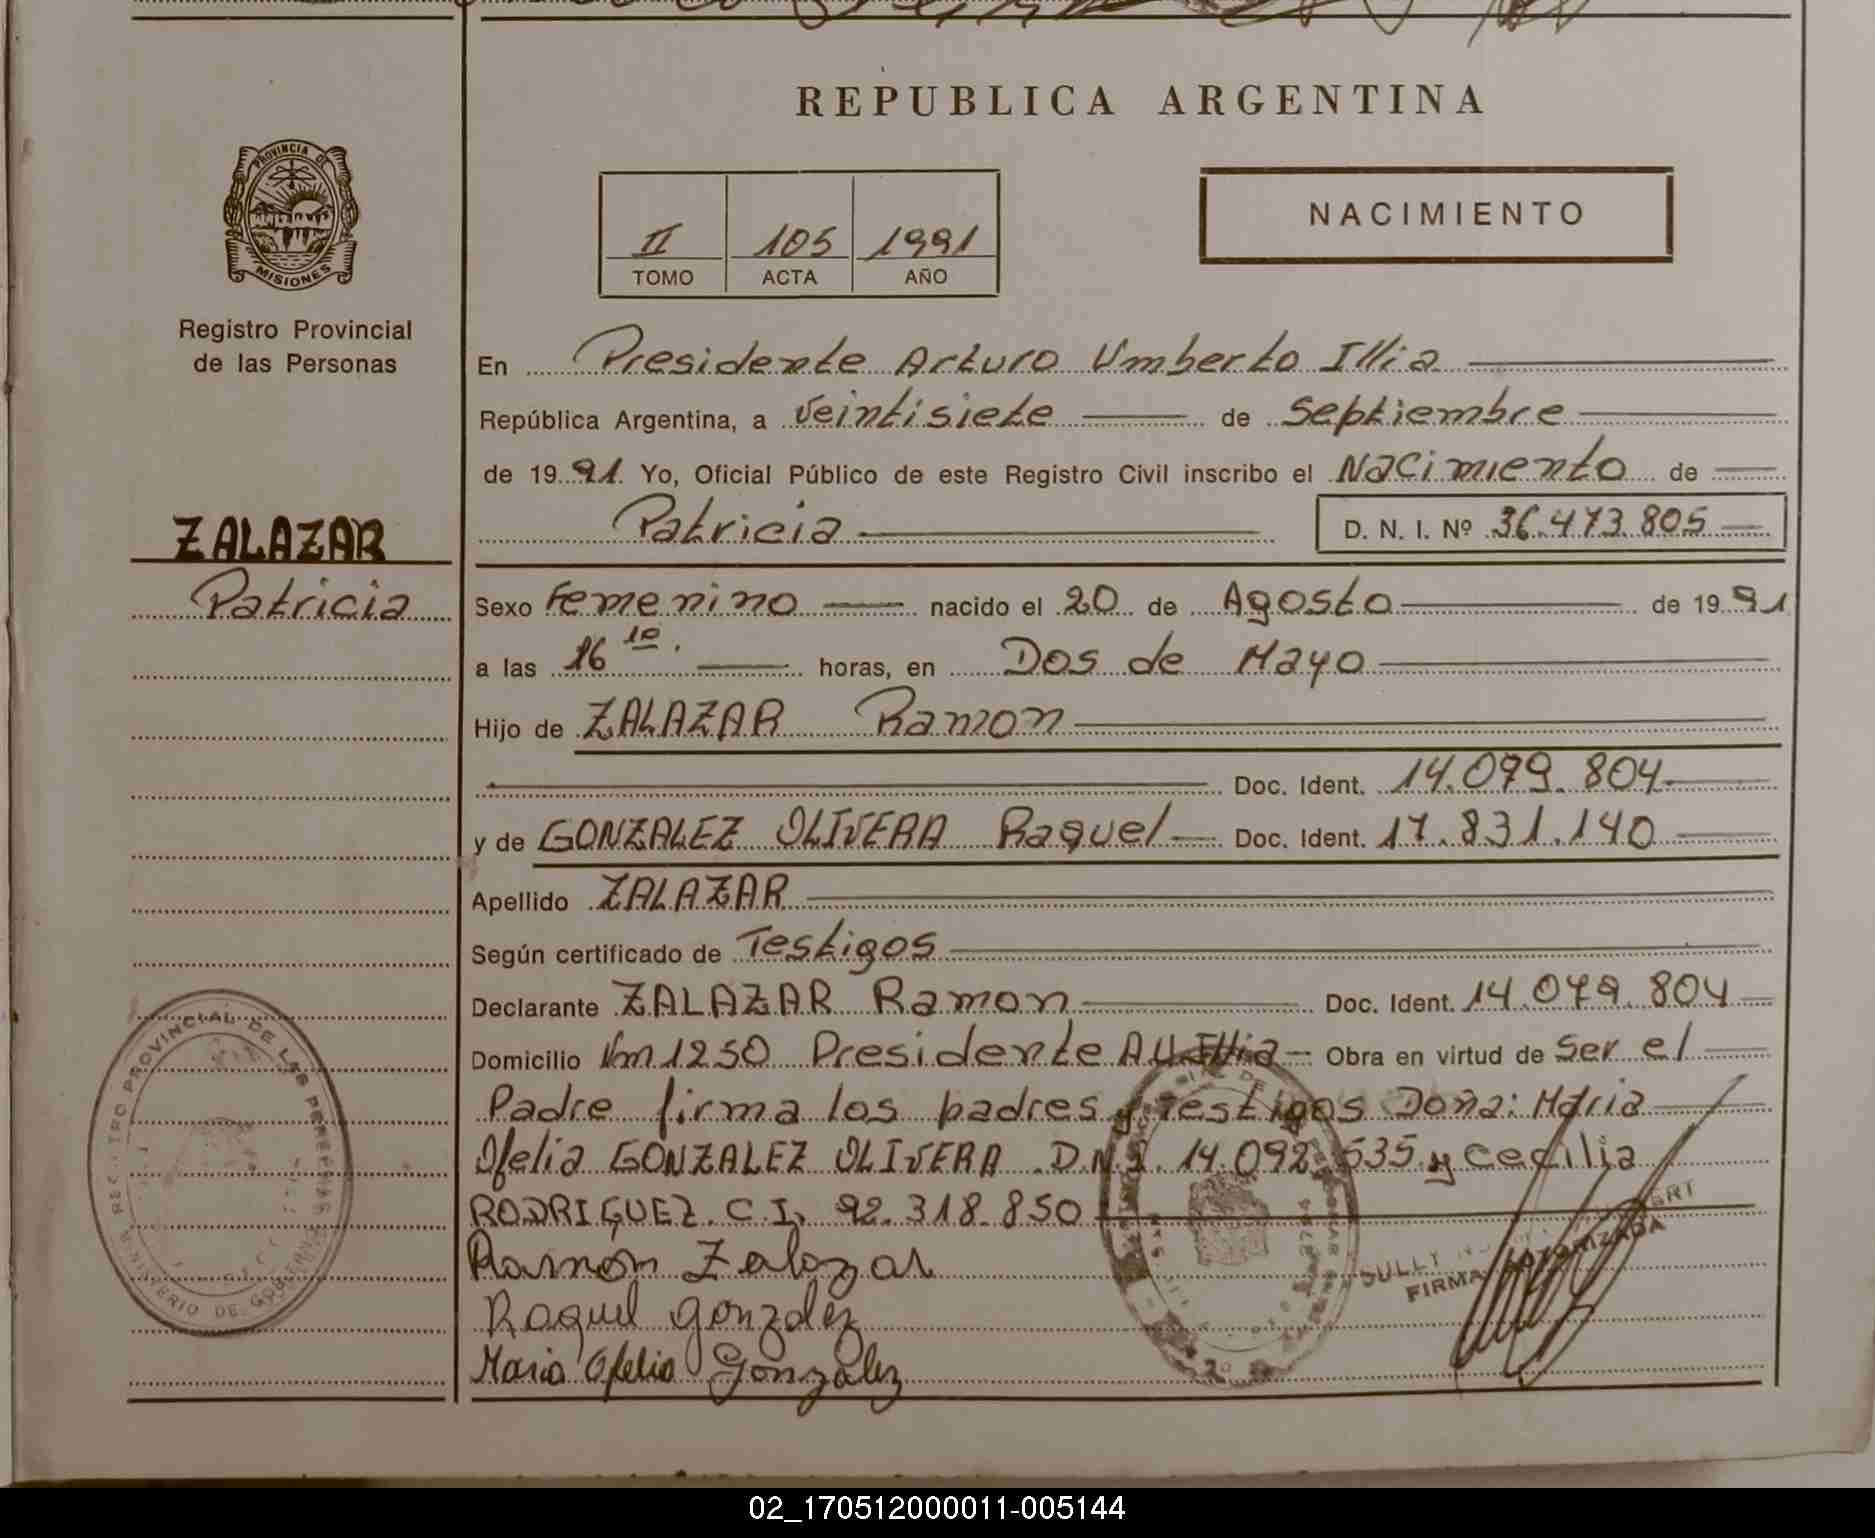 REPUBLICA ARGENTINA
PROVINCIA DE
MISIONES
Registro Provincial
de las Personas
II 105 1991
TOMO ACTA AÑO
NACIMIENTO
En Presidente Arturo Umberto Illia
República Argentina, a veintisiete de Septiembre
de 1991 Yo, Oficial Público de este Registro Civil inscribo el Nacimiento de
Patricia D. N. I. Nº 36.473.805
ZALAZAR
Patricia
Sexo Femenino nacido el 20 de Agosto de 1991
a las 16 10. horas, en Dos de Mayo
Hijo de ZALAZAR Ramon
Doc. Ident. 14.079.804
y de GONZALEZ OLIVERA Raquel Doc. Ident. 17.831.140
Apellido ZALAZAR
Según certificado de Testigos
Declarante ZALAZAR Ramon Doc. Ident. 14.079.804
Domicilio Km 1250 Presidente A.U.Illia Obra en virtud de Ser el
Padre firma los padres y testigos Doña: Maria
Ofelia GONZALEZ OLIVERA D.N.I. 14.092.535 y Cecilia
RODRIGUEZ C.I. 92.318.850
Ramón Zalazar
Raquel gonzalez
Maria Ofelia Gonzalez
PROVINCIAL DE LAS PERSONAS
MINISTERIO DE GOBIERNO
SULLY
FIRMA AUTORIZADA
02_170512000011-005144